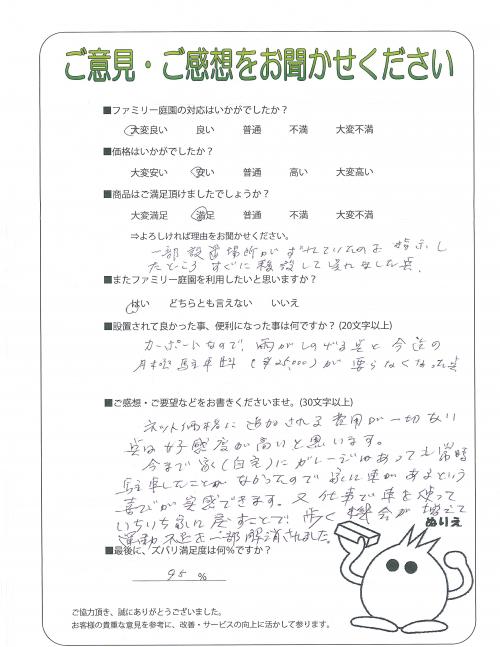 ご意見・ご感想をお聞かせください
■ファミリー庭園の対応はいかがでしたか？
大変良い 良い 普通 不満 大変不満
■価格はいかがでしたか？
大変安い 安い 普通 高い 大変高い
■商品はご満足頂けましたでしょうか？
大変満足 満足 普通 不満 大変不満
⇒よろしければ理由をお聞かせください。
一部設置場所がずれていたのを指示し
たところすぐに移設して呉れました点.
■またファミリー庭園を利用したいと思いますか？
はい どちらとも言えない いいえ
■設置されて良かった事、便利になった事は何ですか？(20文字以上)
カーポートなので、雨がしのげる点と今迄の
月極駐車料(￥25,000)が要らなくなった点
■ご感想・ご要望などをお書きくださいませ。(30文字以上)
ネット価格に追加される費用が一切ない
点は好感度が高いと思います。
今まで家(自宅)にガレージはあっても常時
駐車したことがなかったので家に車があるという
喜びが実感できます。又仕事で車を使って
いちいち家に戻すことで、歩く機会が増えて
運動不足を一部解消されました。
ぬりえ
■最後に、ズバリ満足度は何％ですか？
95 %
ご協力頂き、誠にありがとうございました。
お客様の貴重な意見を参考に、改善・サービスの向上に活かして参ります。